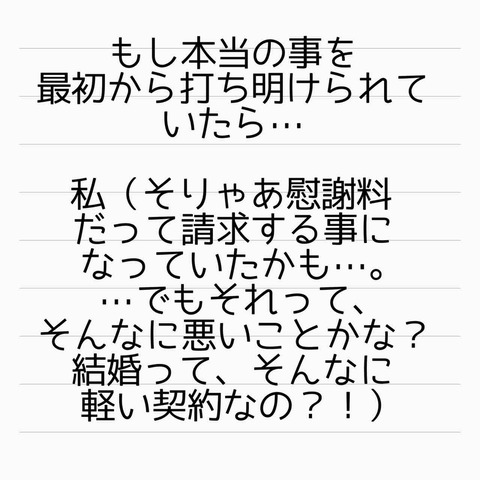 もし本当の事を
最初から打ち明けられて
いたら…
私（そりゃあ慰謝料
だって請求する事に
なっていたかも…。
…でもそれって、
そんなに悪いことかな？
結婚って、そんなに
軽い契約なの？！）